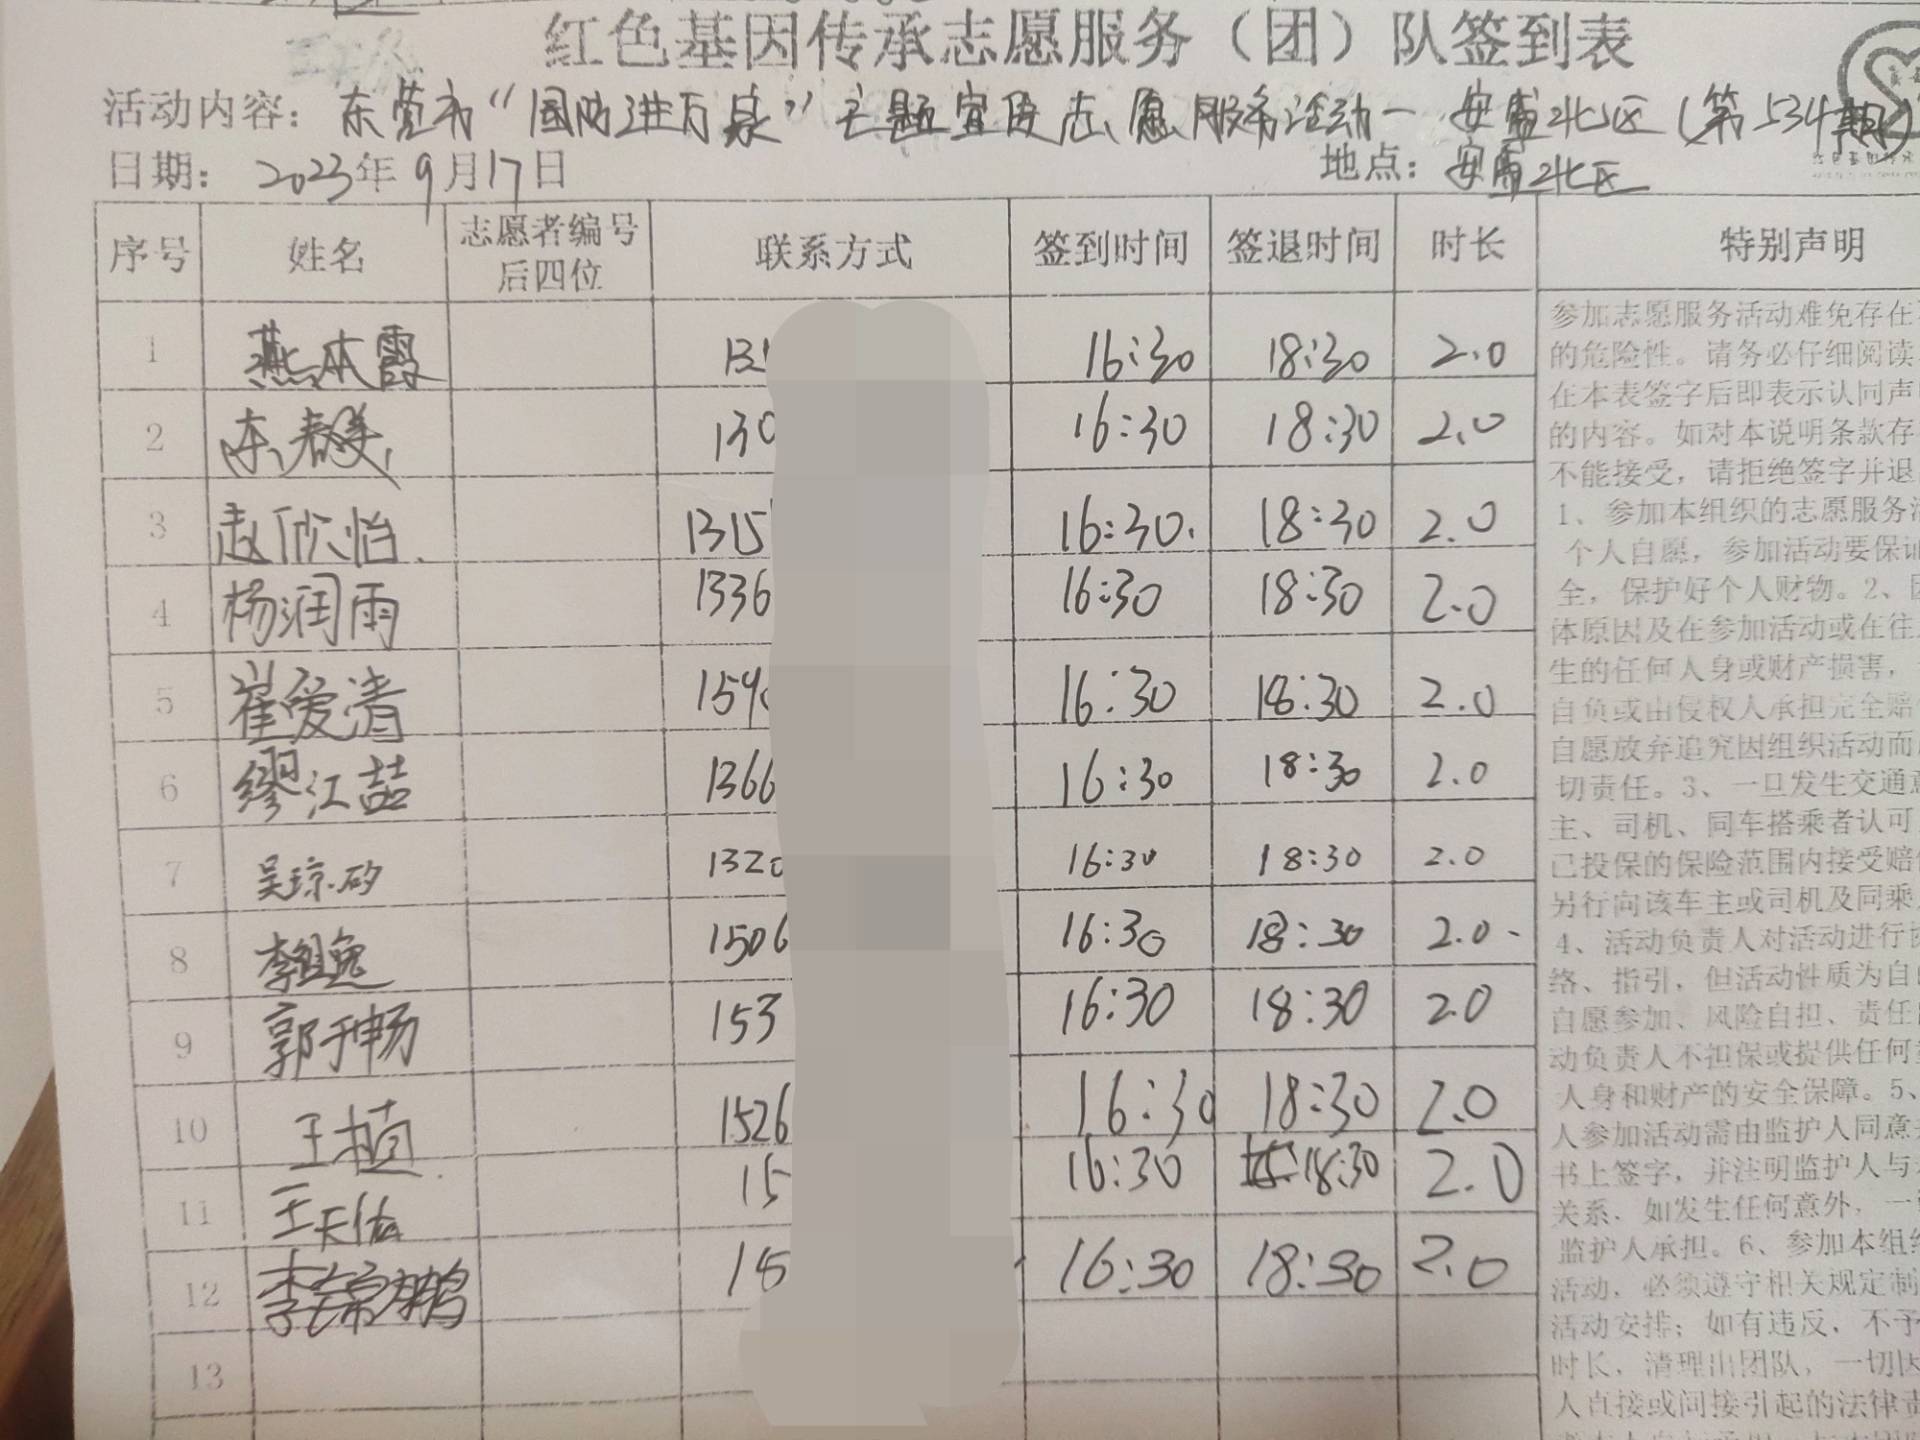 红色基因传承志愿服务（团）队签到表
活动内容：东莞市“国防进万家”主题宣传志愿服务活动一 安富北区(第534期)
日期：2023年9月17日 地点：安富北区
序号 姓名 志愿者编号后四位 联系方式 签到时间 签退时间 时长 特别声明
1 燕本霞 13 16:30 18:30 2.0
2 130 16:30 18:30 2.0
3 赵欣怡 1315 16:30. 18:30 2.0
4 杨润雨 1336 16:30 18:30 2.0
5 崔爱清 159 16:30 18:30 2.0
6 缪江喆 1366 16:30 18:30 2.0
7 吴琼矽 1320 16:30 18:30 2.0
8 李祖逸 1506 16:30 18:30 2.0
9 郭于畅 153 16:30 18:30 2.0
10 王植 1526 16:30 18:30 2.0
11 王天佑 15 16:30 18:30 2.0
12 李 鹏 15 16:30 18:30 2.0
13
参加志愿服务活动难免存在
的危险性。请务必仔细阅读
在本表签字后即表示认同声
的内容。如对本说明条款存
不能接受，请拒绝签字并退
1、参加本组织的志愿服务
个人自愿，参加活动要保证
全，保护好个人财物。2、因
体原因及在参加活动或在往
生的任何人身或财产损害，
自负或由侵权人承担完全赔
自愿放弃追究因组织活动而
切责任。3、一旦发生交通意
主、司机、同车搭乘者认可
已投保的保险范围内接受赔
另行向该车主或司机及同乘
4、活动负责人对活动进行
络、指引，但活动性质为自
自愿参加、风险自担、责任
动负责人不担保或提供任何
人身和财产的安全保障。5、
人参加活动需由监护人同意
书上签字，并注明监护人与
关系．如发生任何意外，一
监护人承担。6、参加本组织
活动，必须遵守相关规定制
活动安排；如有违反，不予
时长，清理出团队，一切因
人直接或间接引起的法律责